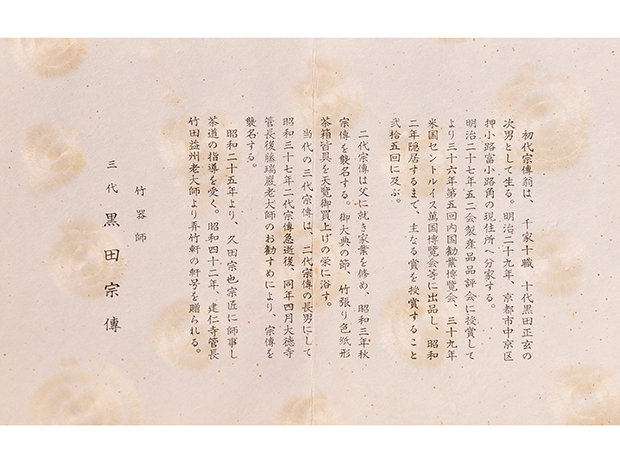 初代宗傳翁は、千家十職　十代黒田正玄の
次男として生る。明治二十九年、京都市中京区
押小路富小路角の現住所へ分家する。
明治二十七年五二会製産品品評会に授賞して
より三十六年第五回内国勧業博覧会、三十九年
米国セントルイス萬国博覧会等に出品し、昭和
二年隠居するまで、主なる賞を授賞すること
弐拾五回に及ぶ。
二代宗傳は父に就き家業を修め、昭和三年秋
宗傳を襲名する。御大典の節、竹張り色紙形
茶箱皆具を天覧御買上げの栄に浴す。
当代の三代宗傳は、二代宗傳の長男にして
昭和三十七年二代宗傳急逝後、同年四月大徳寺
管長後藤瑞巌老大師のお勧すめにより、宗傳を
襲名する。
昭和二十五年より、久田宗也宗匠に師事し
茶道の指導を受く。昭和四十二年、建仁寺管長
竹田益州老大師より弄竹軒の軒号を贈られる。
竹器師
三代　黒田宗傳